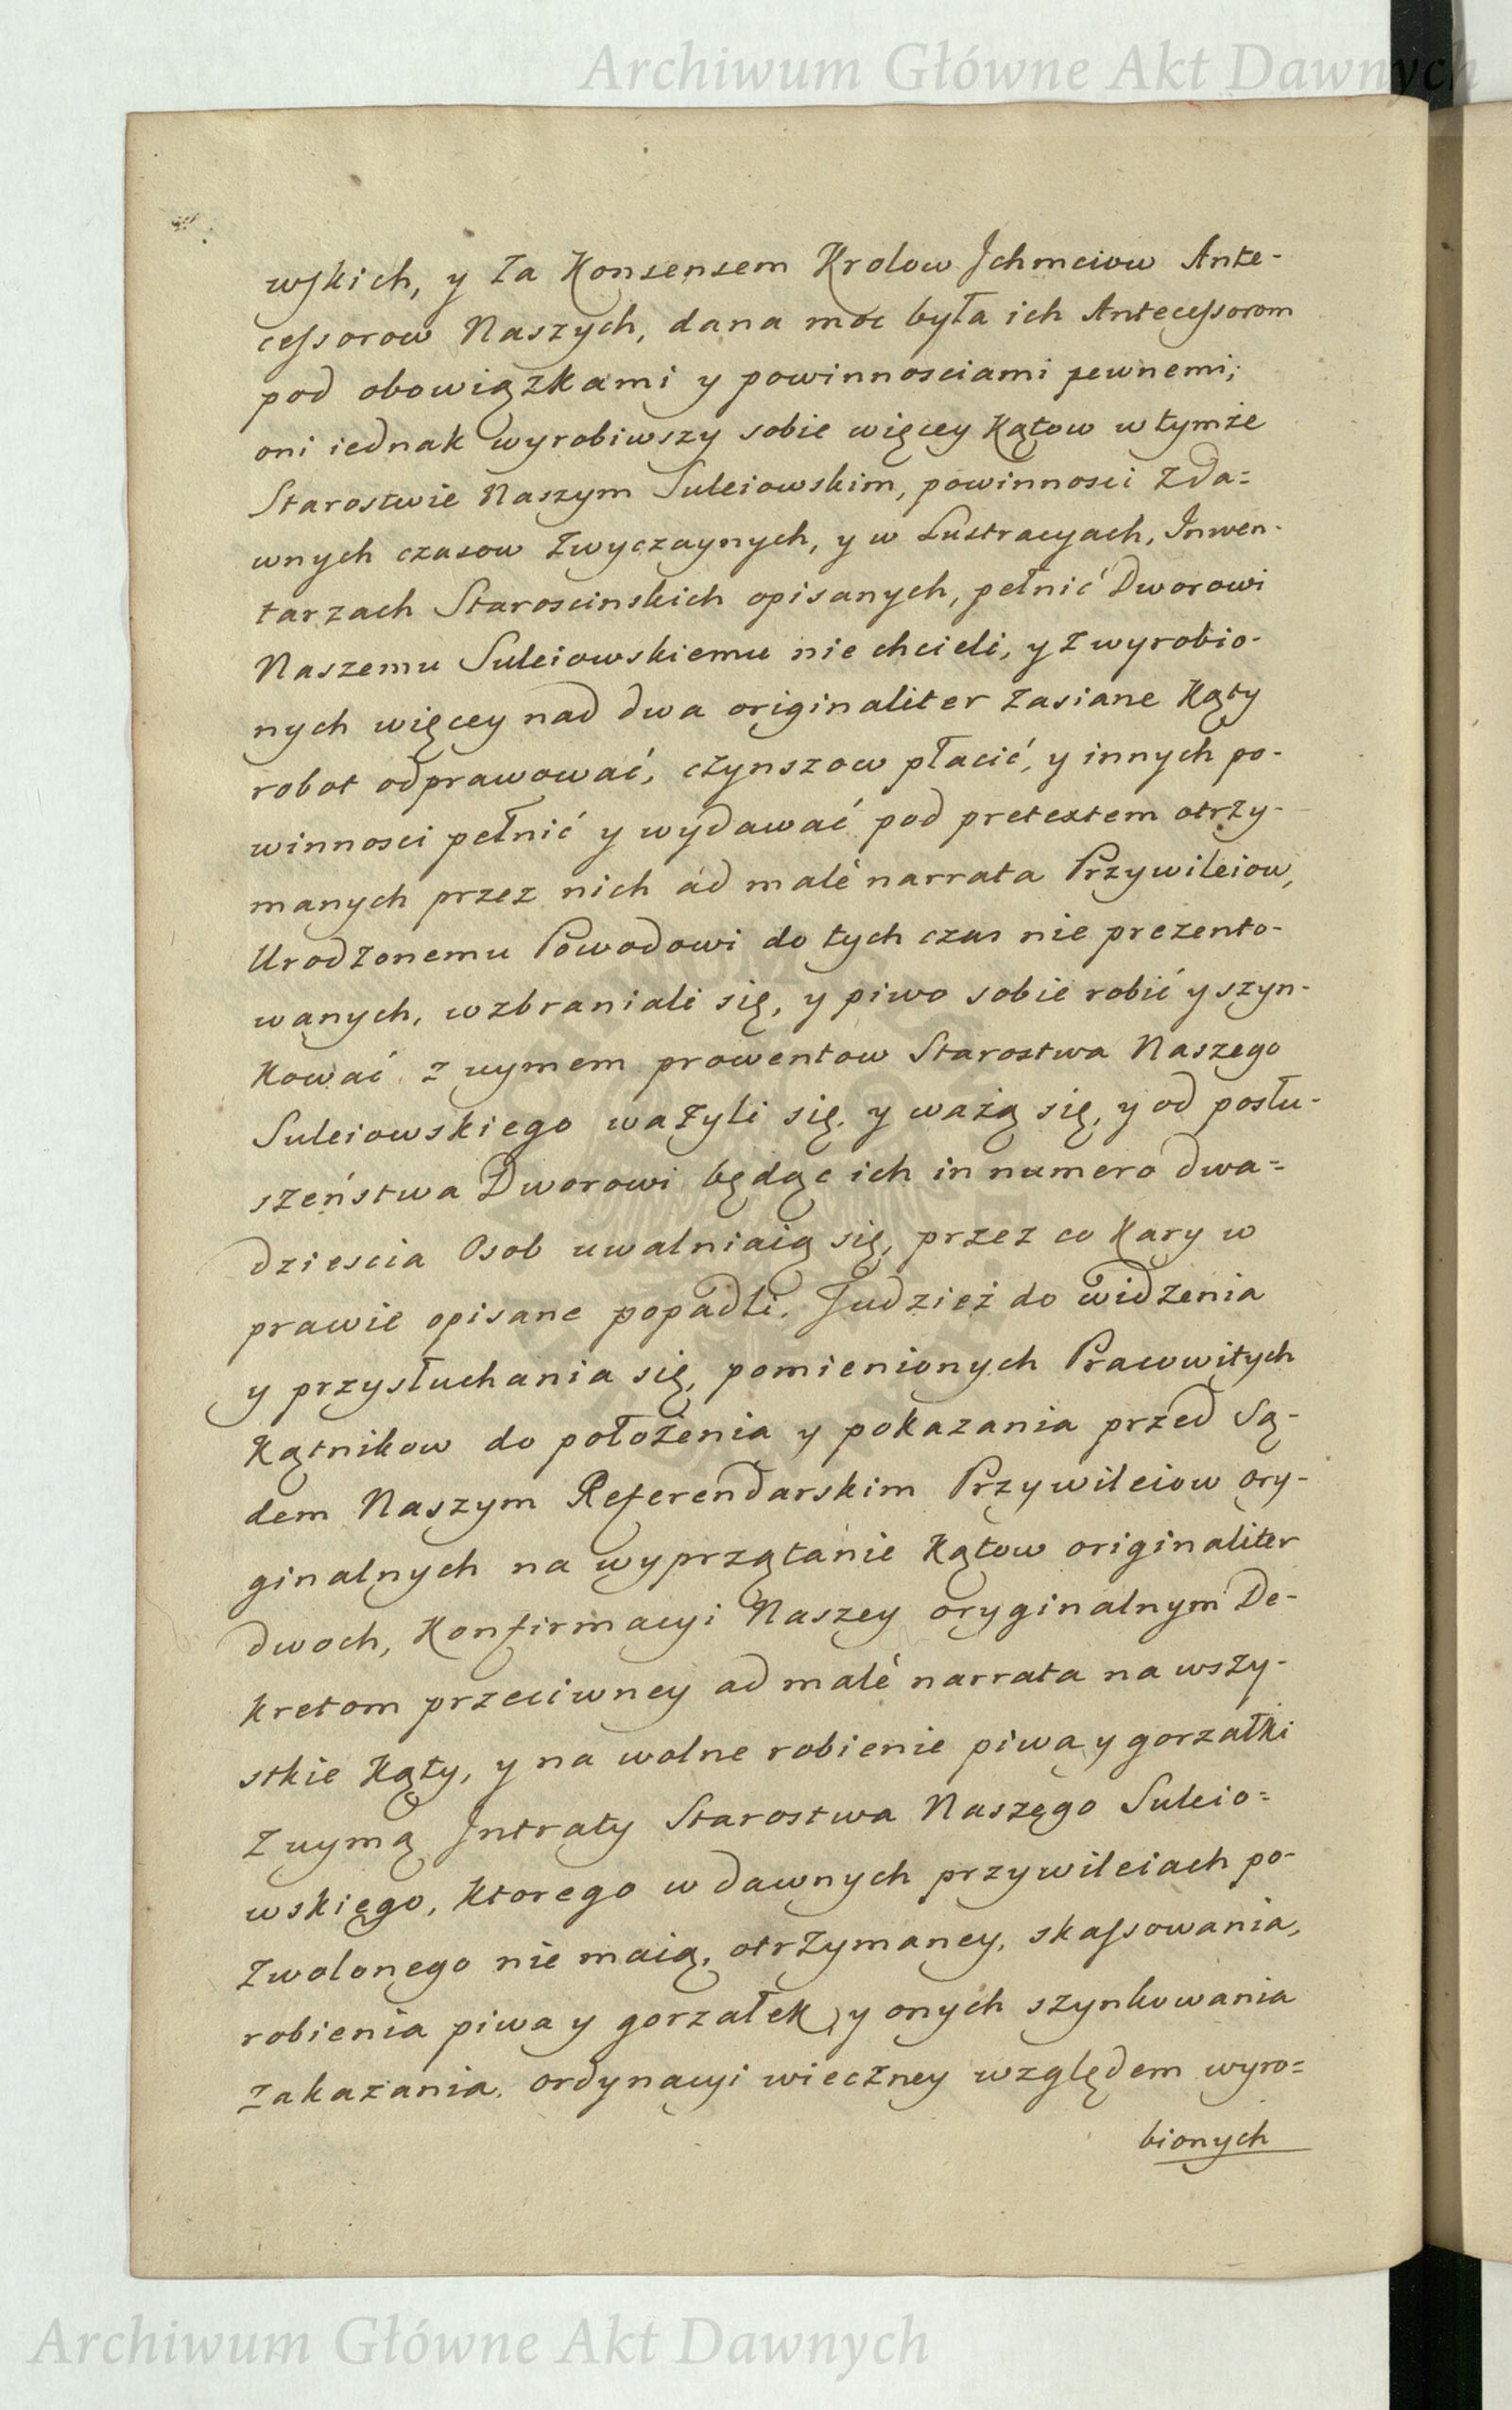 Archiwum Główne Akt Dawnych
wskich, y za Konsensem Krolow Jchmciow Ante-
cessorow Naszych, dana moc była ich Antecessorom
pod obowiązkami y powinnosciami pewnemi;
oni iednak wyrobiwszy sobie więcey Kątow w tymże
Starostwie Naszym Suleiowskim, powinnosci zda=
wnych czasow zwyczaynych, y w Lustracyach, Inwen-
tarzach Staroscinskich opisanych, pełnić Dworowi
Naszemu Suleiowskiemu nie chcieli, y z wyrobio-
nych więcey nad dwa originaliter zasiane Kąty
robot odprawować, czynszow płacić, y innych po-
winnosci pełnić y wydawać pod pretextem otrzy-
manych przez nich ad malè narrata Przywileiow,
Urodzonemu Powodowi do tych czas nie prezento-
wanych, wzbraniali się, y piwo sobie robić y szyn-
kować z uymem prowentow Starostwa Naszego
Suleiowskiego ważyli się, y ważą się, y od posłu-
szeństwa Dworowi będąc ich in numero dwa=
dziescia Osob uwalniaią się, przez co kary w
prawie opisane popadli. Judzież do widzenia
y przysłuchania się, pomienionych Pracowitych
Kątnikow do położenia y pokazania przed Są-
dem Naszym Referendarskim Przywileiow ory-
ginalnych na wyprzątanie Kątow originaliter
dwoch, Konfirmacyi Naszey oryginalnym De-
kretom przeciwney ad malè narrata na wszy-
stkie Kąty, y na wolne robienie piwa y gorzałki
z uymą Jntraty Starostwa Naszego Suleio=
wskiego, ktorego w dawnych przywileiach po-
zwolonego nie maią, otrzymaney, skassowania,
robienia piwa y gorzałek, y onych szynkowania
zakazania, ordynacyi wieczney względem wyro=
bionych
Archiwum Główne Akt Dawnych